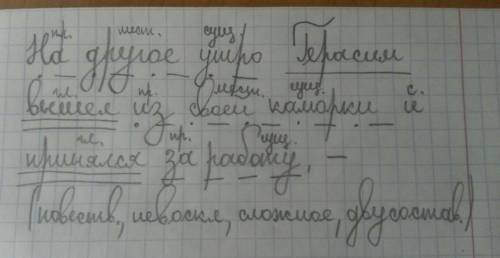 пр. мест. сущ.
На другое утро Герасим
гл. пр. мест. сущ. с.
вышел из своей каморки и
гл. пр. сущ.
принялся за работу, –
(повеств., невоскл., сложное, двусостав.)